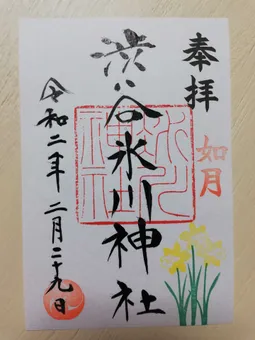 奉拝
如月
渋谷氷川神社
令和二年二月二十九日